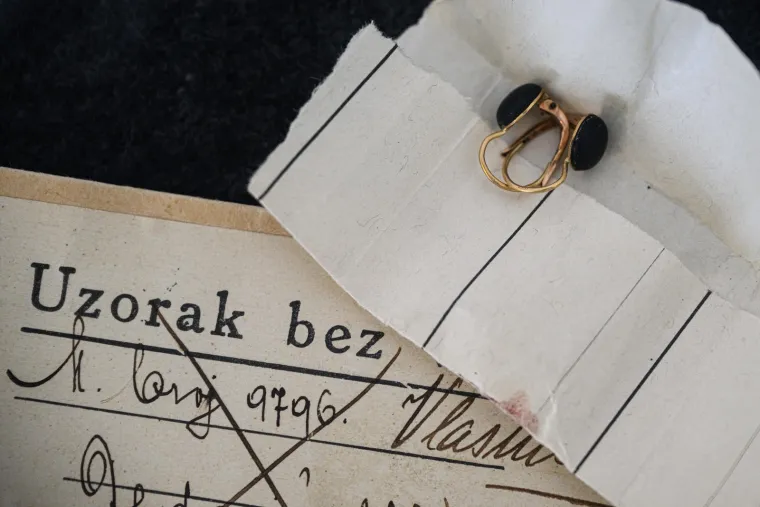 Uzorak bez
M. broj 9796. Vlasni